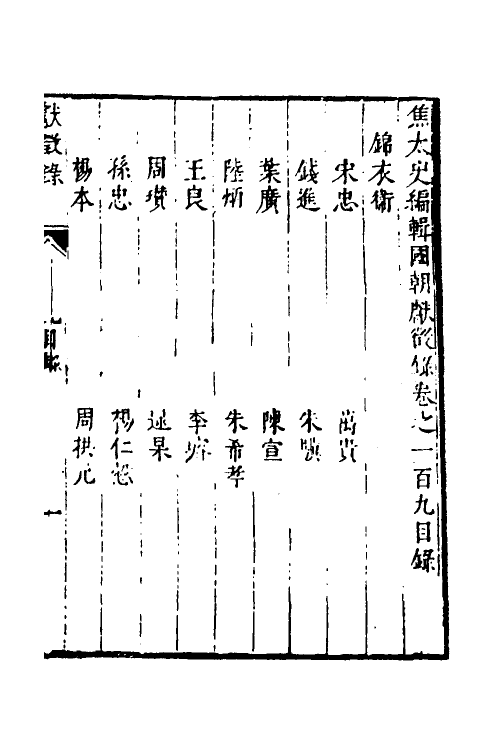 焦太史編輯國朝獻徵錄卷之一百九目錄
錦衣衛
宋忠 萬貴
錢進 朱驥
葉廣 陳宣
陸炳 朱希孝
王良 李
周瓚 逯杲
孫忠 楊仁
楊本 周拱元
獻徵錄
目錄